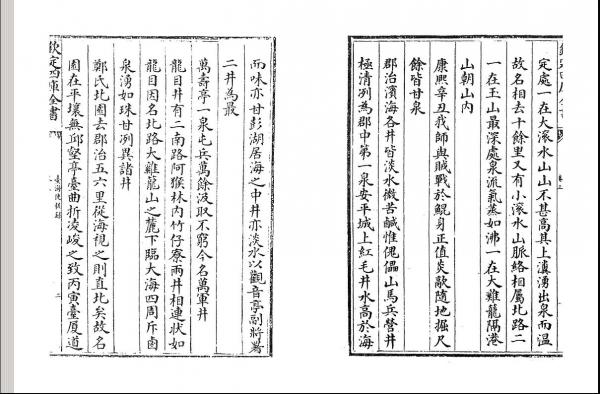 定處一在大滾水山山不甚高其上濆湧出泉而溫
故名相去十餘里又有小滾水山脈絡相屬北路二
一在玉山最深處泉流氣蒸如沸一在大雞籠隔港
山朝山內
康熙辛丑我師與賊戰於鯤身正值炎歊隨地掘尺
餘皆甘泉
郡治濱海各井皆淡水微苦鹹惟傀儡山馬兵營井
極清冽為郡中第一泉安平城上紅毛井水高於海
而味亦甘彭湖居海之中井亦淡水以觀音亭副將署
二井為最
萬壽亭一泉屯兵萬餘汲取不窮今名萬軍井
龍目井有二南路阿猴林內竹仔寮兩井相連狀如
龍目因名北路大雞籠山之麓下臨大海四周斥鹵
泉湧如珠甘冽異諸井
鄭氏北園去郡治五六里從海視之則直北矣故名
園在平壤無邱壑亭臺曲折凌峻之致丙寅臺厦道
欽定四庫全書
臺海使槎錄
二